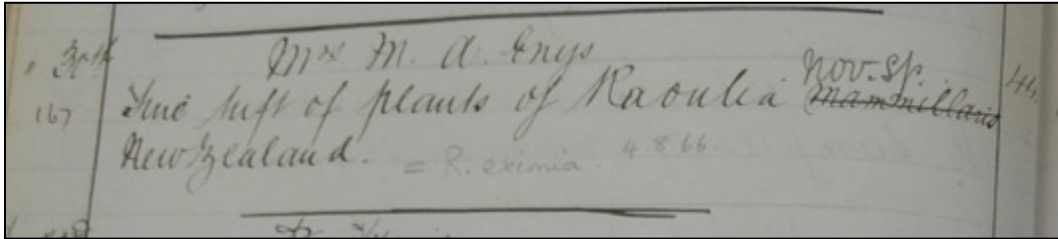 " 30th Mrs M. A. Enys
nov. sp.
167 Fine tuft of plants of Raoulia Mammillaris 44.
New Zealand. = R. eximia. 4.8.66.